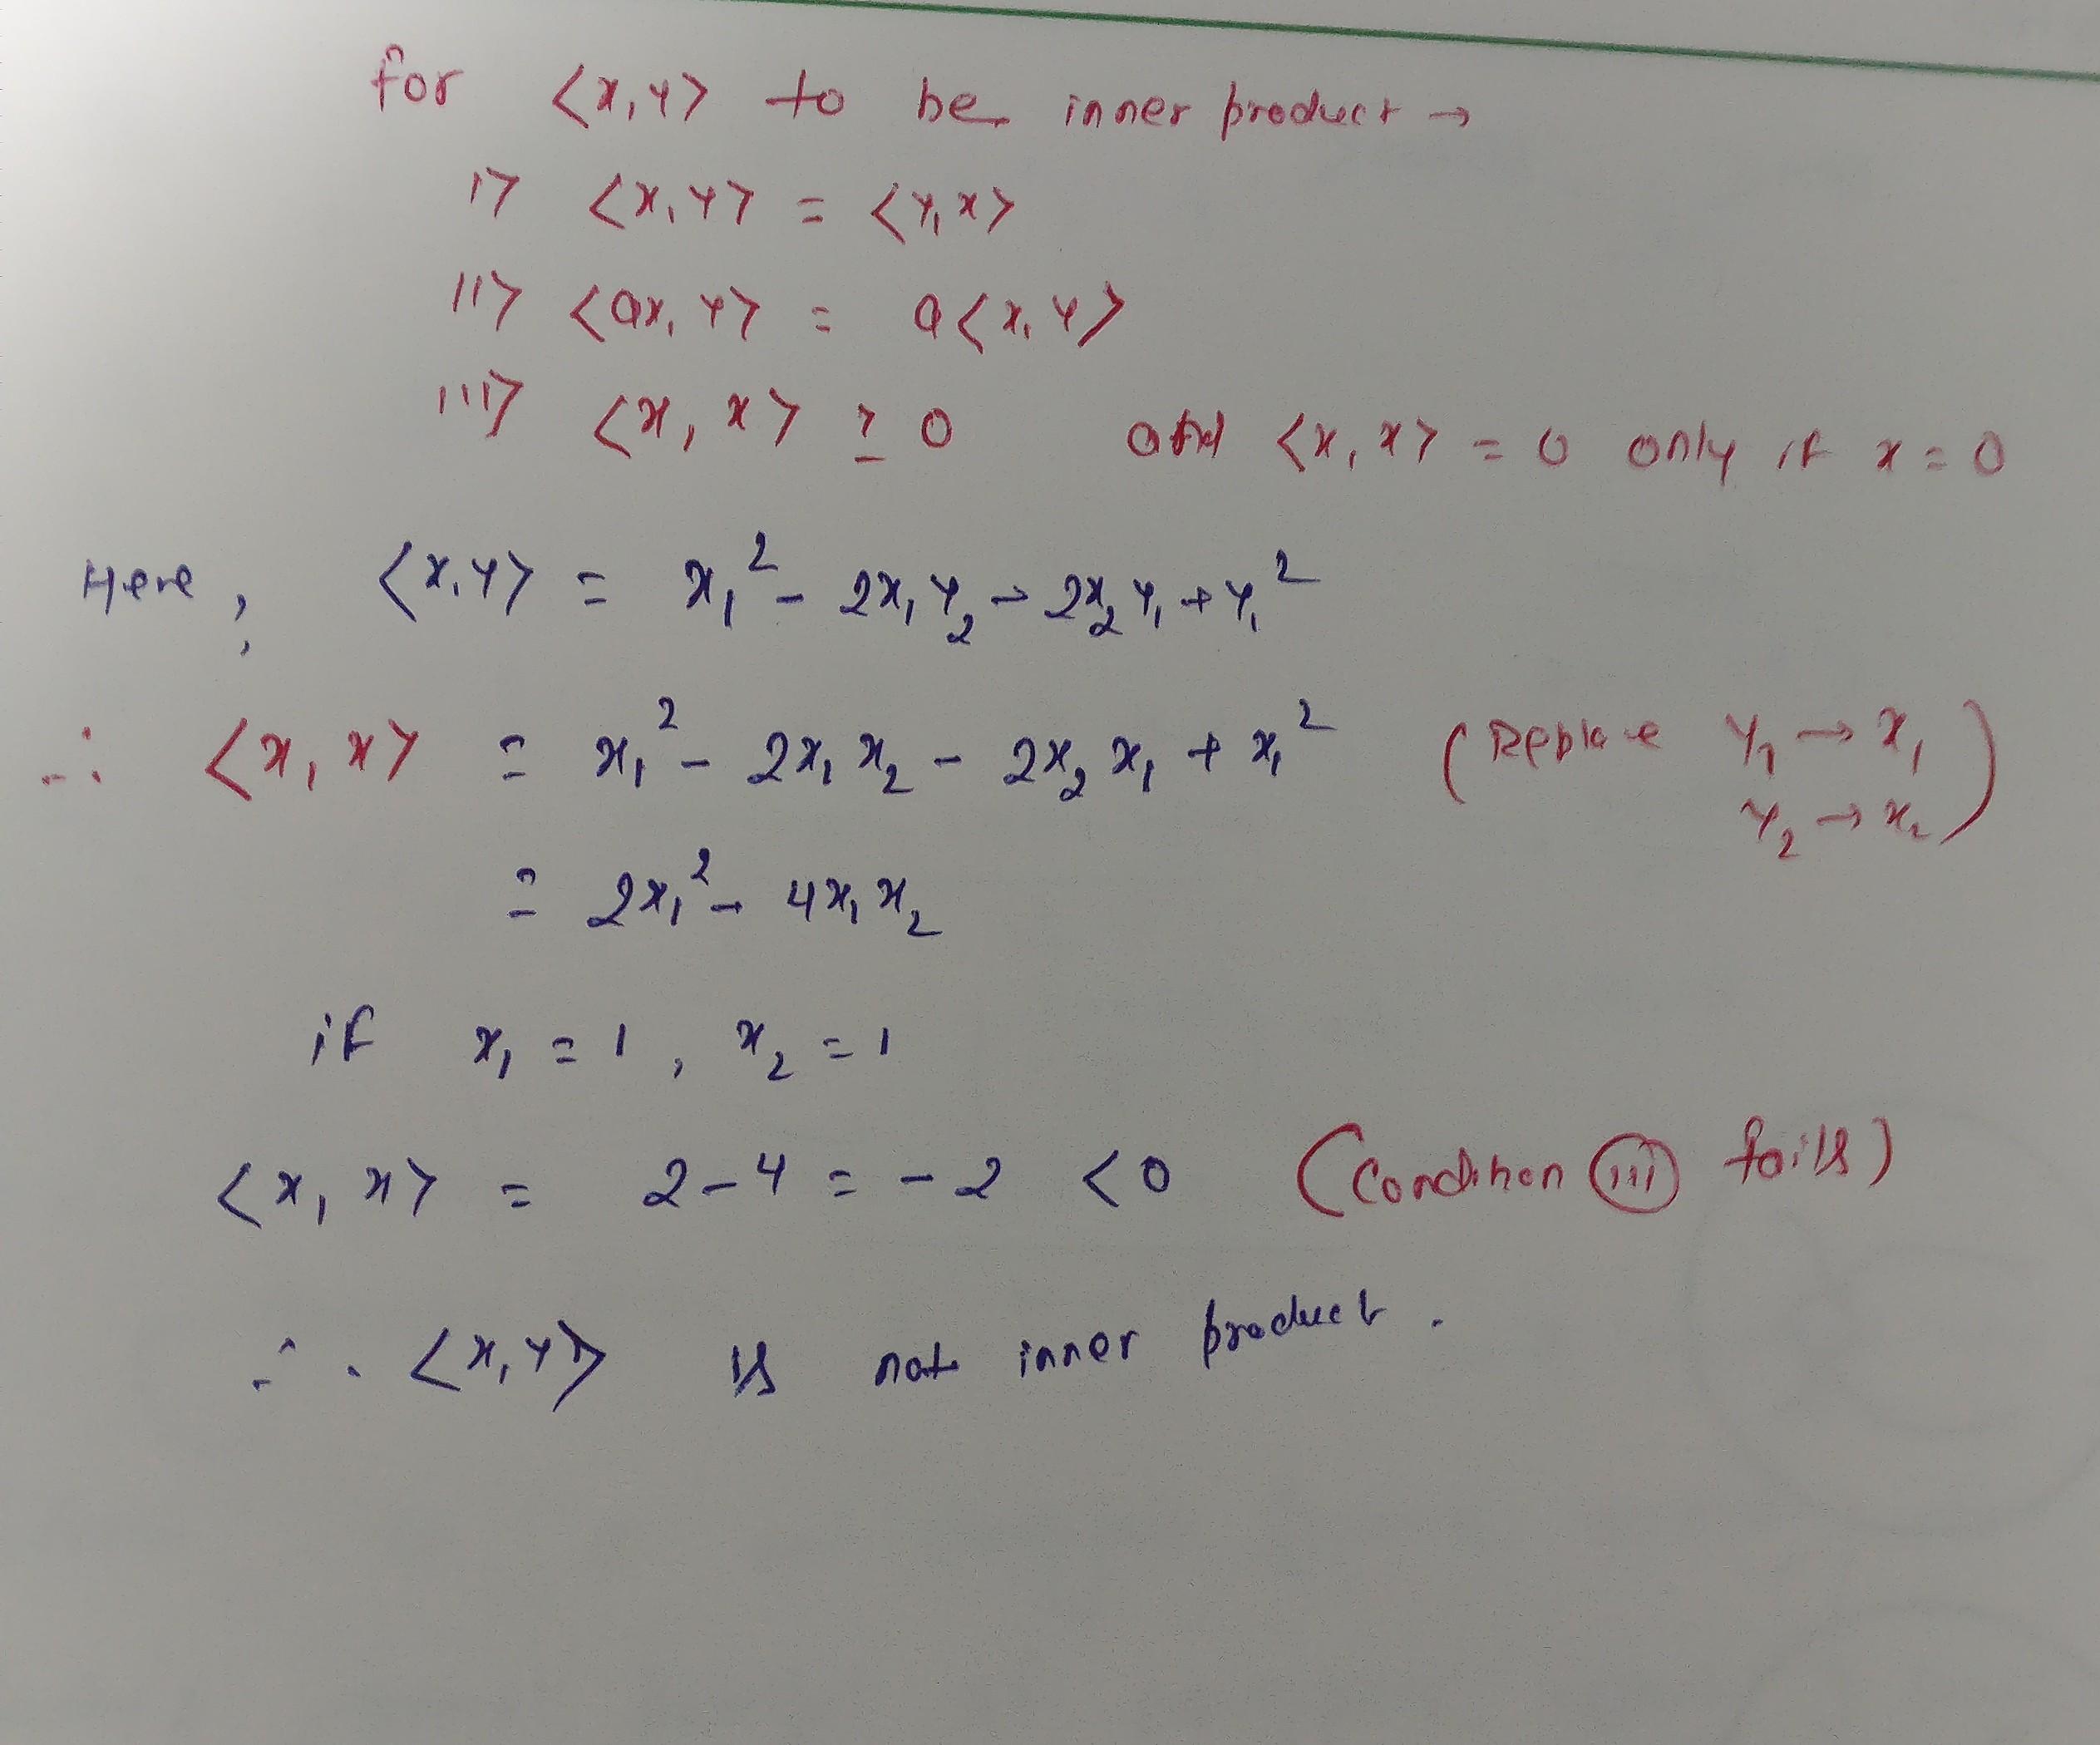 for <x,y> to be inner product →
i> <x,y> = <y,x>
ii> <ax,y> = a<x,y>
iii> <x,x> ≥ 0 and <x,x> = 0 only if x=0
Here, <x,y> = x₁² - 2x₁y₂ - 2x₂y₁ + y₁²
∴ <x,x> = x₁² - 2x₁x₂ - 2x₂x₁ + x₁² (Replace y₁ → x₁
y₂ → x₂)
= 2x₁² - 4x₁x₂
if x₁ = 1, x₂ = 1
<x,x> = 2-4 = -2 <0 (Condition (iii) fails)
∴ <x,y> is not inner product.